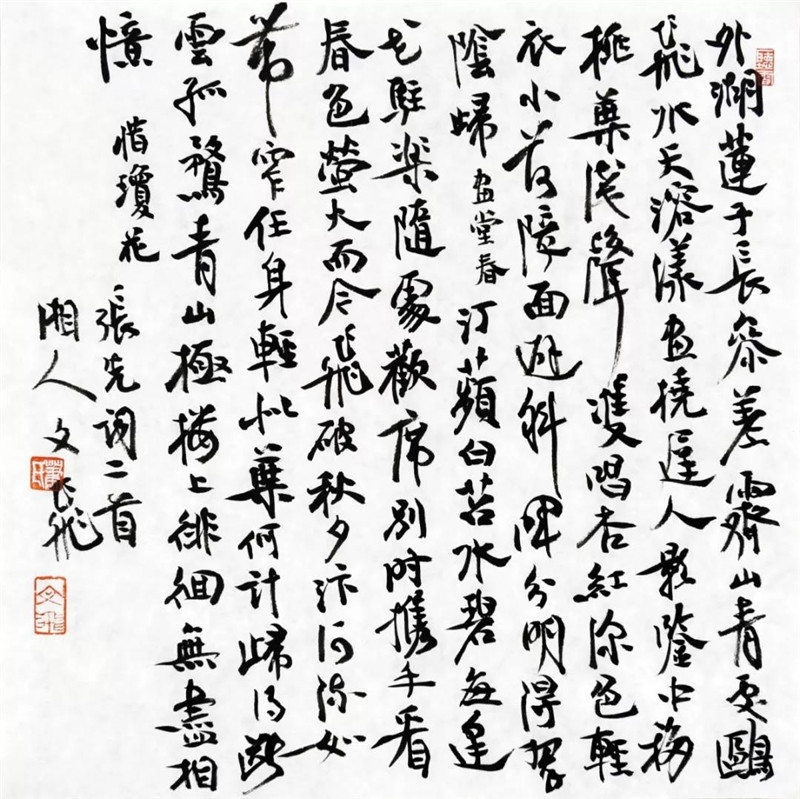 外湖蓮子長參差霽山青處鷗
飛水天溶漾畫橈遲人影鑒中移
桃葉淺聲雙唱杏紅深色輕
衣小荷障面避斜暉分明得翠
陰歸 畫堂春 汀蘋白苕水碧每逢
花駐樂隨處歡席別時攜手看
春色螢火而今飛破秋夕汴河流如
帶窄任身輕似葉何計歸得斷
雲孤鶩青山極樓上徘徊無盡相
憶 惜瓊花
張先詞二首
湘人文飛
文飛